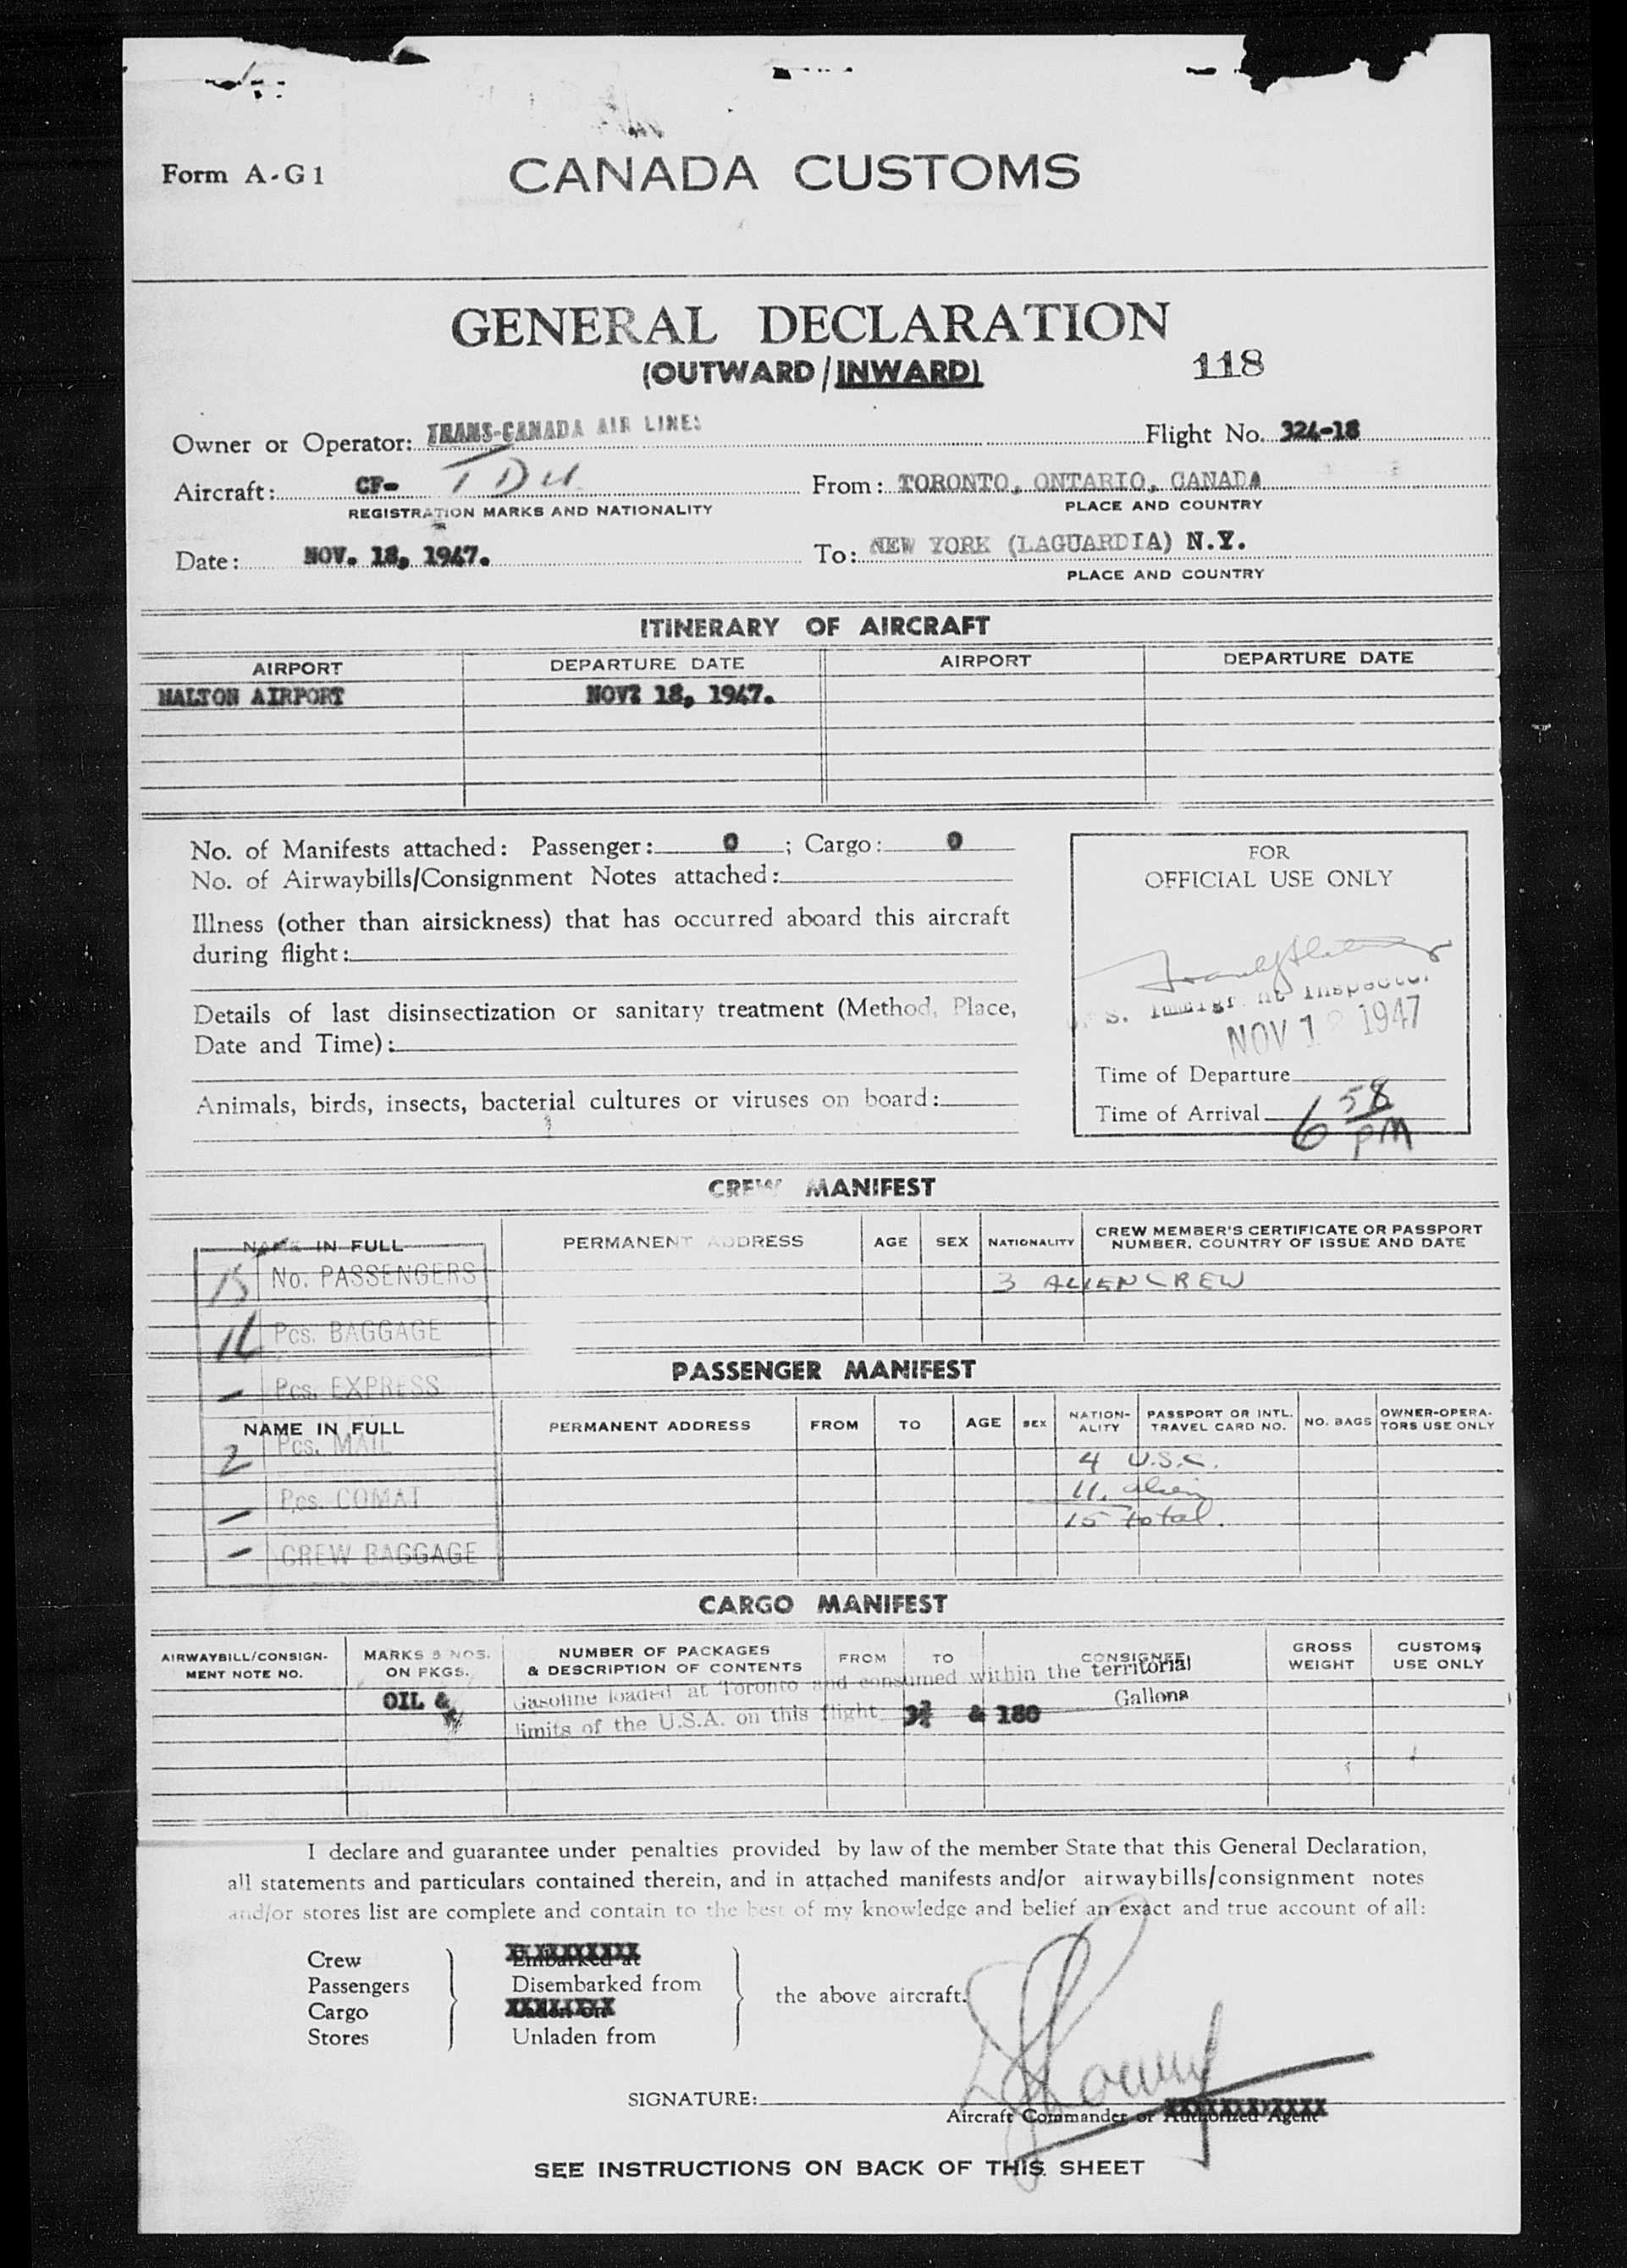 Form A-G1
CANADA CUSTOMS
GENERAL DECLARATION
(OUTWARD/INWARD)
118
Owner or Operator: TRANS-CANADA AIR LINES Flight No. 324-18
Aircraft: CF- TDU From: TORONTO, ONTARIO, CANADA
REGISTRATION MARKS AND NATIONALITY PLACE AND COUNTRY
Date: NOV. 18, 1947. To: NEW YORK (LAGUARDIA) N.Y.
PLACE AND COUNTRY
ITINERARY OF AIRCRAFT
AIRPORT DEPARTURE DATE AIRPORT DEPARTURE DATE
MALTON AIRPORT NOV? 18, 1947.
No. of Manifests attached: Passenger: 0 ; Cargo: 0
No. of Airwaybills/Consignment Notes attached:
Illness (other than airsickness) that has occurred aboard this aircraft
during flight:
Details of last disinsectization or sanitary treatment (Method, Place,
Date and Time):
Animals, birds, insects, bacterial cultures or viruses on board:
FOR
OFFICIAL USE ONLY
S. Immigrant Inspector
NOV 1 1947
Time of Departure
Time of Arrival 6 58 PM
CREW MANIFEST
NAME IN FULL PERMANENT ADDRESS AGE SEX NATIONALITY CREW MEMBER'S CERTIFICATE OR PASSPORT
NUMBER, COUNTRY OF ISSUE AND DATE
15 No. PASSENGERS
3 ALIEN CREW
Pcs. BAGGAGE
PASSENGER MANIFEST
- Pcs. EXPRESS
NAME IN FULL PERMANENT ADDRESS FROM TO AGE SEX NATION-
ALITY PASSPORT OR INTL.
TRAVEL CARD NO. NO. BAGS OWNER-OPERA-
TORS USE ONLY
2 Pcs. MAIL
4 U.S.C.
11. alien
15 total.
- Pcs. COMAT
- CREW BAGGAGE
CARGO MANIFEST
AIRWAYBILL/CONSIGN-
MENT NOTE NO. MARKS & NOS.
ON PKGS. NUMBER OF PACKAGES
& DESCRIPTION OF CONTENTS FROM TO CONSIGNEE GROSS
WEIGHT CUSTOMS
USE ONLY
OIL & Gasoline loaded at Toronto and consumed within the territorial
limits of the U.S.A. on this flight 3¾ & 180 Gallons
I declare and guarantee under penalties provided by law of the member State that this General Declaration,
all statements and particulars contained therein, and in attached manifests and/or airwaybills/consignment notes
and/or stores list are complete and contain to the best of my knowledge and belief an exact and true account of all:
Crew Embarked at
Passengers Disembarked from
the above aircraft.
Cargo Laden on
Stores Unladen from
SIGNATURE:
Aircraft Commander or Authorized Agent
SEE INSTRUCTIONS ON BACK OF THIS SHEET